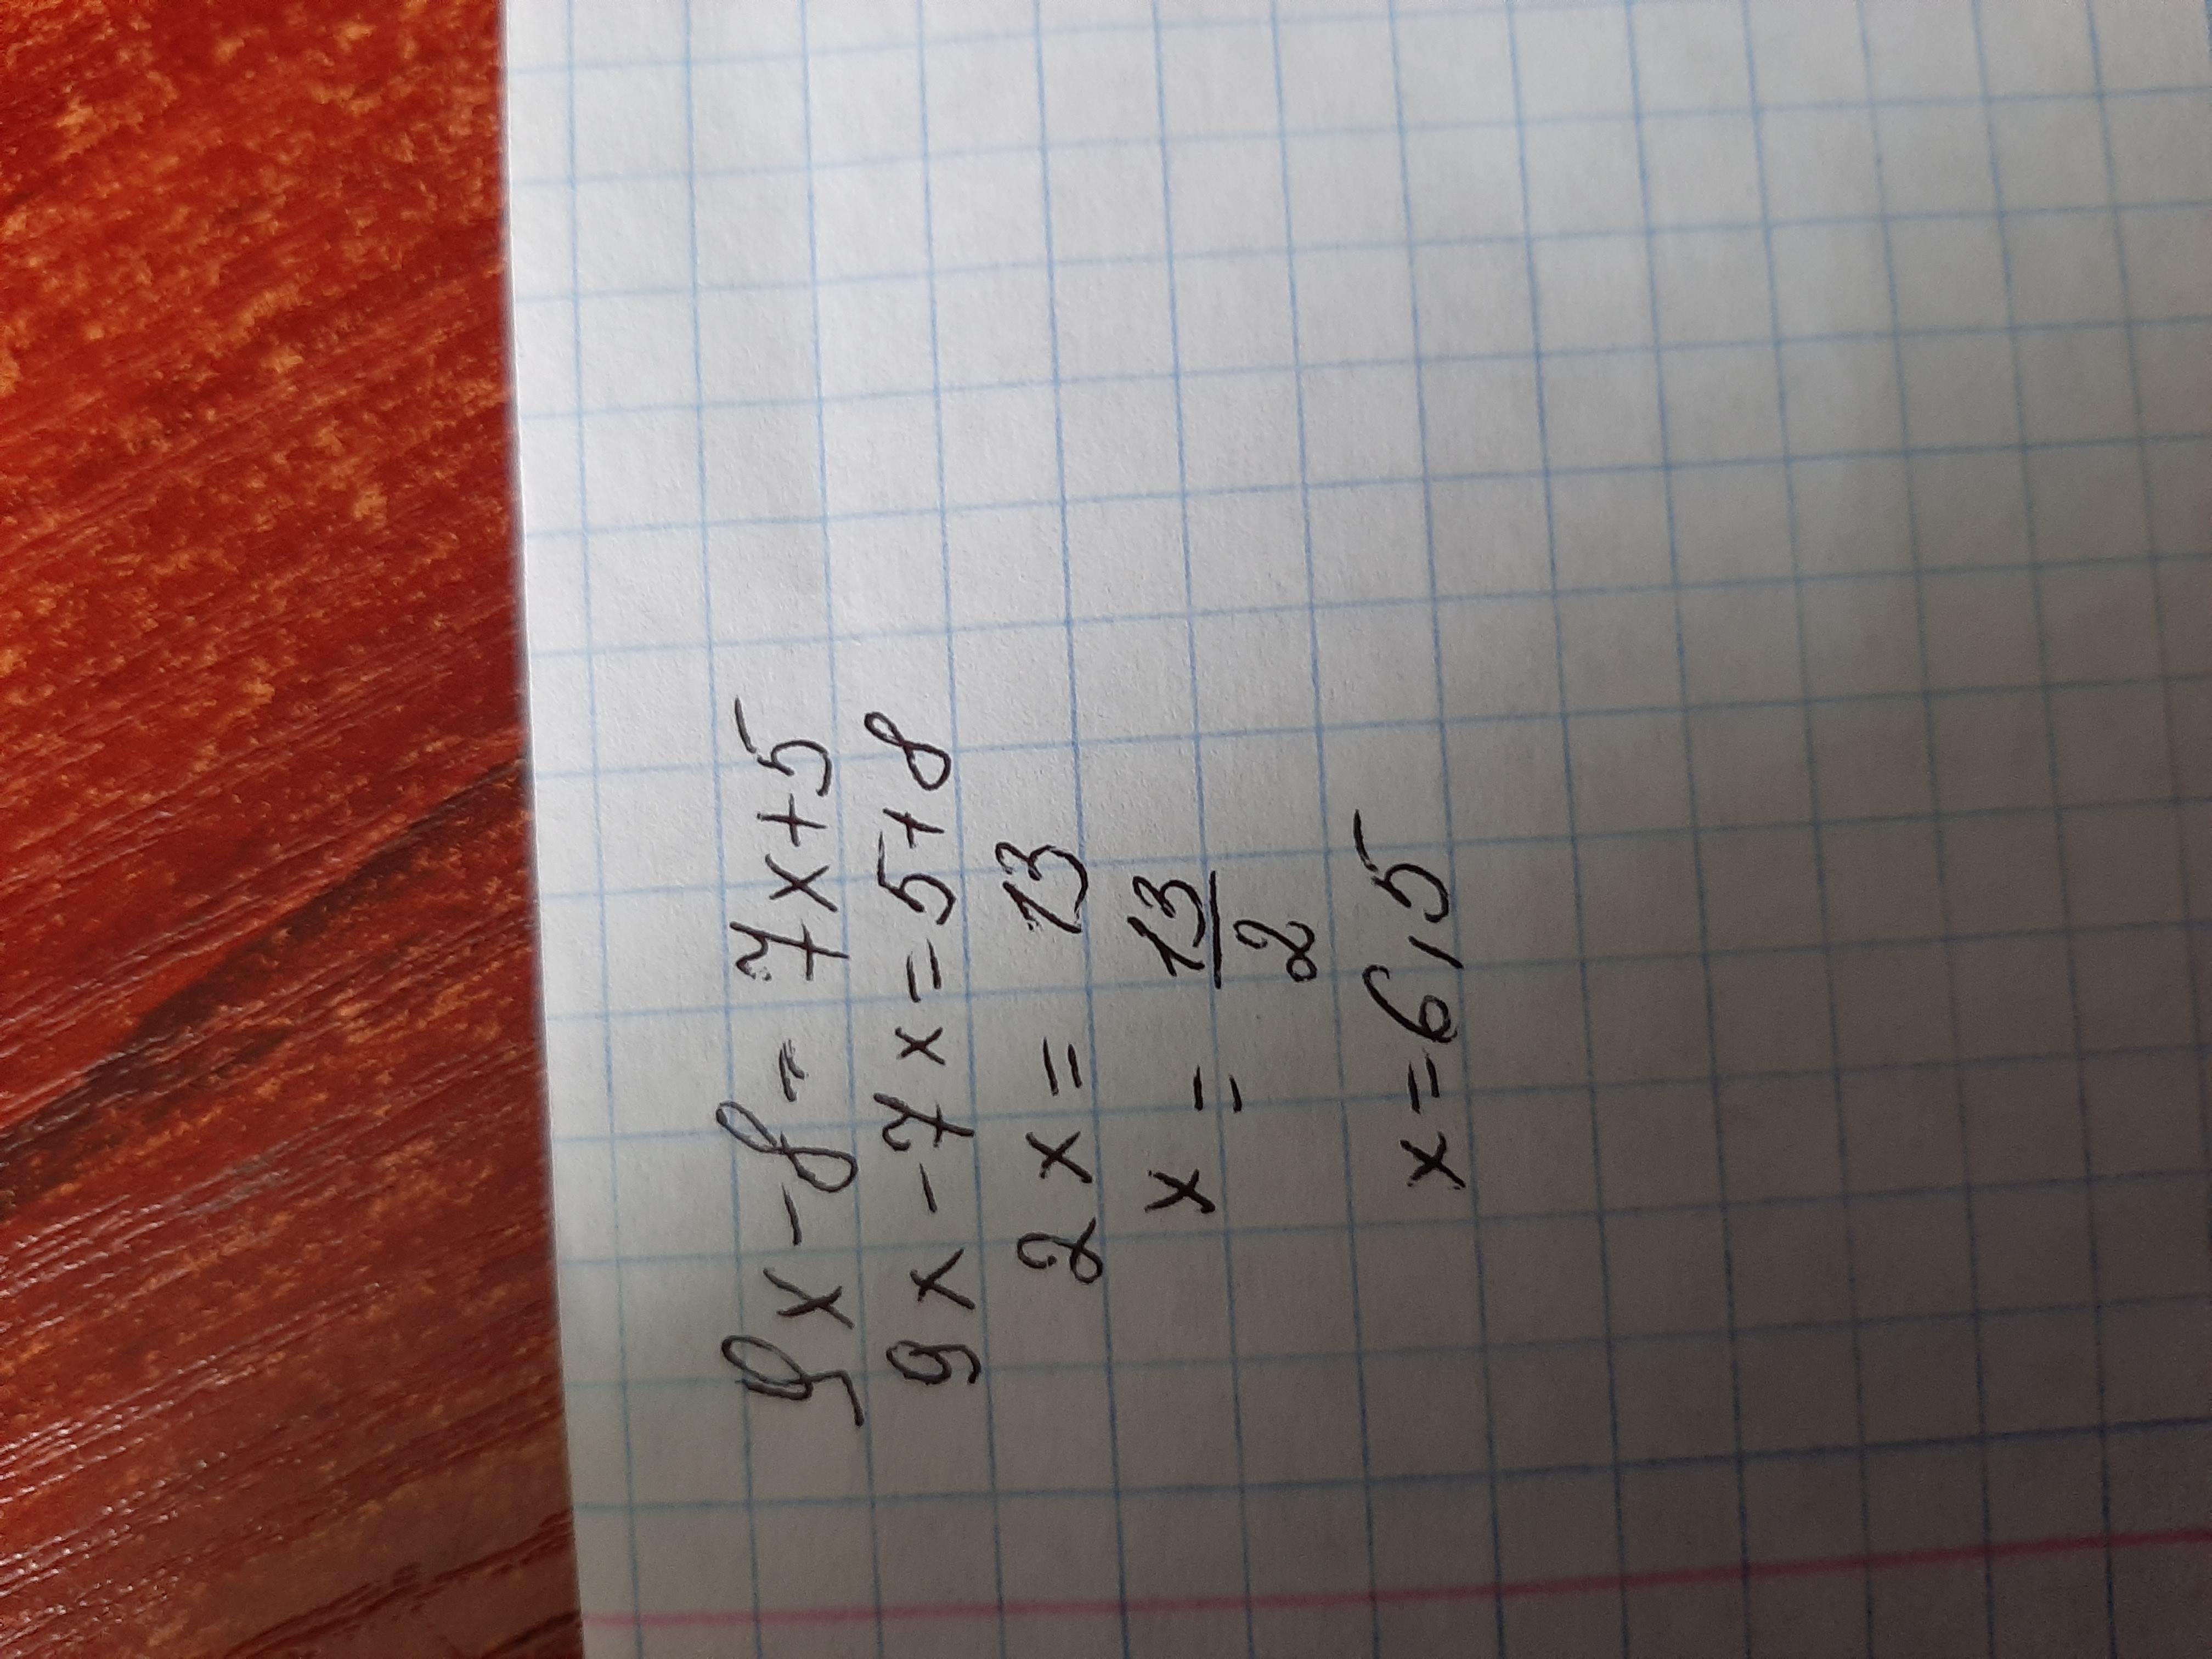 9x-8=7x+5
9x-7x=5+8
2x=13
x=13/2
x=6,5